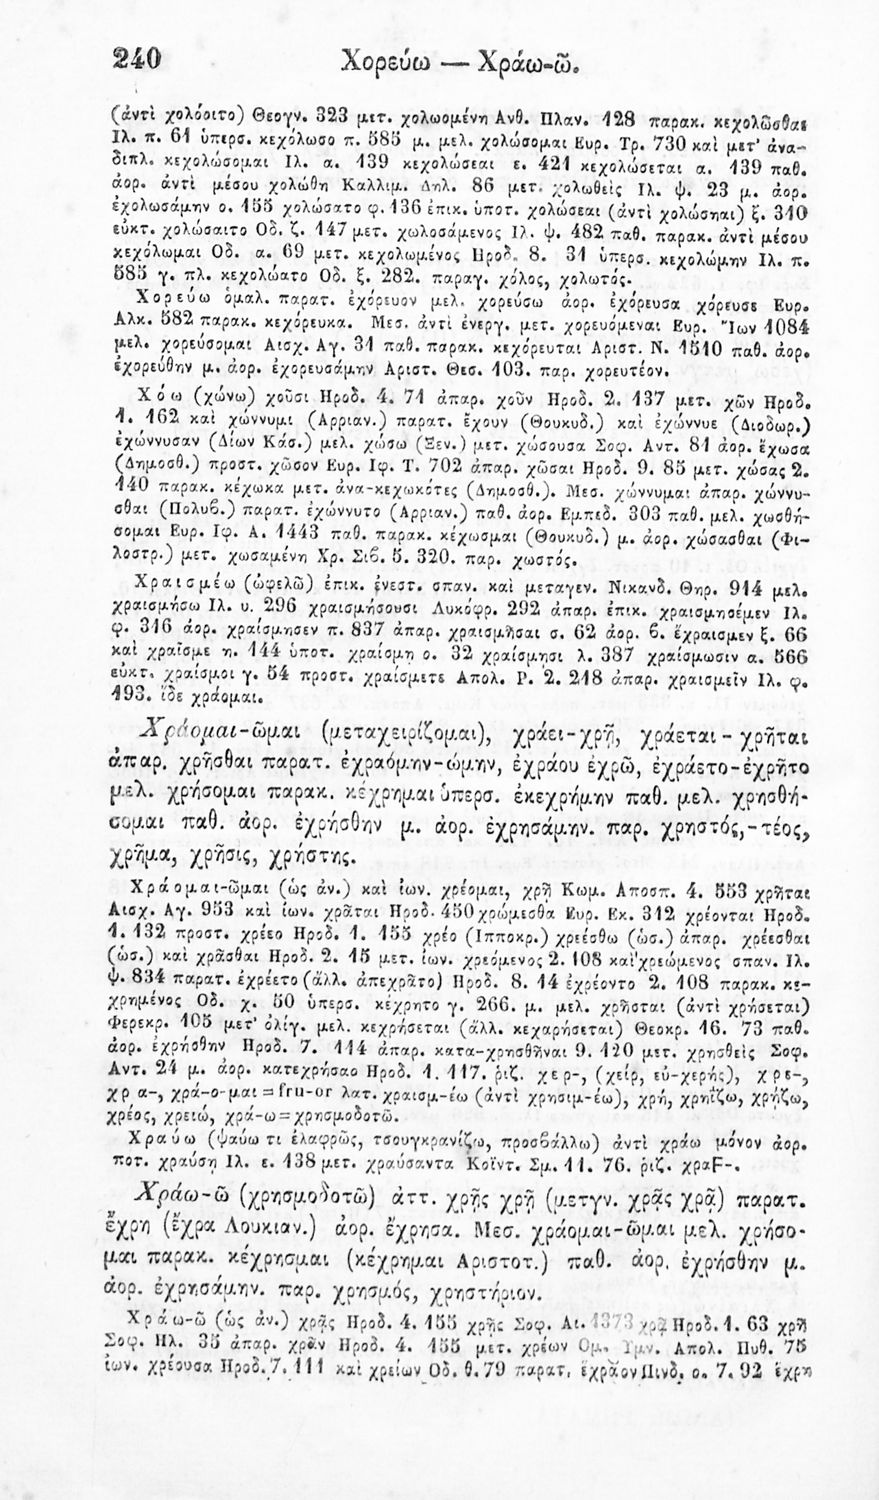 240 Χορεύω — Χράω-ῶ.
(ἀντὶ χολόοιτο) Θεογν. 323 μετ. χολωομένη Ανθ. Πλαν. 128 παρακ. κεχολῶσθαι
Ιλ. π. 61 ὑπερσ. κεχόλωσο π. 585 μ. μελ. χολώσομαι Ευρ. Τρ. 730 καὶ μετ’ ἀνα-
διπλ. κεχολώσομαι Ιλ. α. 139 κεχολώσεαι ε. 421 κεχολώσεται α. 139 παθ.
ἀορ. ἀντὶ μέσου χολώθη Καλλιμ. Δηλ. 86 μετ. χολωθεὶς Ιλ. ψ. 23 μ. ἀορ.
ἐχολωσάμην ο. 155 χολώσατο φ. 136 ἐπικ. ὑποτ. χολώσεαι (ἀντὶ χολώσηαι) ξ. 310
εὐκτ. χολώσαιτο Οδ. ζ. 147 μετ. χωλοσάμενος Ιλ. ψ. 482 παθ. παρακ. ἀντὶ μέσου
κεχόλωμαι Οδ. α. 69 μετ. κεχολωμένος Ηροδ. 8. 31 ὑπερσ. κεχολώμην Ιλ. π.
585 γ. πλ. κεχολώατο Οδ. ξ. 282. παραγ. χόλος, χολωτός.
Χορεύω ὁμαλ. παρατ. ἐχόρευον μελ. χορεύσω ἀορ. ἐχόρευσα χόρευσε Ευρ.
Αλκ. 582 παρακ. κεχόρευκα. Μεσ. ἀντὶ ἐνεργ. μετ. χορευόμεναι Ευρ. Ἴων 1084
μελ. χορεύσομαι Αισχ. Αγ. 31 παθ. παρακ. κεχόρευται Αριστ. Ν. 1510 παθ. ἀορ.
ἐχορεύθην μ. ἀορ. ἐχορευσάμην Αριστ. Θεσ. 103. παρ. χορευτέον.
Χόω (χώνω) χοῦσι Ηροδ. 4. 71 ἀπαρ. χοῦν Ηροδ. 2. 137 μετ. χῶν Ηροδ.
1. 162 καὶ χώννυμι (Αρριαν.) παρατ. ἔχουν (Θουκυδ.) καὶ ἐχώννυε (Διοδωρ.)
ἐχώννυσαν (Δίων Κάσ.) μελ. χώσω (Ξεν.) μετ. χώσουσα Σοφ. Αντ. 81 ἀορ. ἔχωσα
(Δημοσθ.) προστ. χῶσον Ευρ. Ιφ. Τ. 702 ἀπαρ. χῶσαι Ηροδ. 9. 85 μετ. χώσας 2.
140 παρακ. κέχωκα μετ. ἀνα-κεχωκότες (Δημοσθ.). Μεσ. χώννυμαι ἀπαρ. χώννυ-
σθαι (Πολυβ.) παρατ. ἐχώννυτο (Αρριαν.) παθ. ἀορ. Εμπεδ. 303 παθ. μελ. χωσθή-
σομαι Ευρ. Ιφ. Α. 1443 παθ. παρακ. κέχωσμαι (Θουκυδ.) μ. ἀορ. χώσασθαι (Φι-
λοστρ.) μετ. χωσαμένη Χρ. Σιβ. 5. 320. παρ. χωστός.
Χραισμέω (ὠφελῶ) ἐπικ. ἐνεστ. σπαν. καὶ μεταγεν. Νικανδ. Θηρ. 914 μελ.
χραισμήσω Ιλ. υ. 296 χραισμήσουσι Λυκόφρ. 292 ἀπαρ. ἐπικ. χραισμησέμεν Ιλ.
φ. 316 ἀορ. χραίσμησεν π. 837 ἀπαρ. χραισμῆσαι σ. 62 ἀορ. β. ἔχραισμεν ξ. 66
καὶ χραῖσμε η. 144 ὑποτ. χραίσμῃ ο. 32 χραίσμῃσι λ. 387 χραίσμωσιν α. 566
εὐκτ. χραίσμοι γ. 54 προστ. χραίσμετε Απολ. Ρ. 2. 218 ἀπαρ. χραισμεῖν Ιλ. φ.
193. ἴδε χράομαι.
Χράομαι-ῶμαι (μεταχειρίζομαι), χράει-χρῇ, χράεται - χρῆται
ἀπαρ. χρῆσθαι παρατ. ἐχραόμην-ώμην, ἐχράου ἐχρῶ, ἐχράετο-ἐχρῆτο
μελ. χρήσομαι παρακ. κέχρημαι ὑπερσ. ἐκεχρήμην παθ. μελ. χρησθή-
σομαι παθ. ἀορ. ἐχρήσθην μ. ἀορ. ἐχρησάμην. παρ. χρηστός,-τέος,
χρῆμα, χρῆσις, χρήστης.
Χράομαι-ῶμαι (ὡς ἀν.) καὶ ἰων. χρέομαι, χρῇ Κωμ. Αποσπ. 4. 553 χρῆται
Αισχ. Αγ. 953 καὶ ἰων. χρᾶται Ηροδ. 450 χρώμεσθα Ευρ. Εκ. 312 χρέονται Ηροδ.
1. 132 προστ. χρέεο Ηροδ. 1. 155 χρέο (Ιπποκρ.) χρεέσθω (ὡσ.) ἀπαρ. χρέεσθαι
(ὡσ.) καὶ χρᾶσθαι Ηροδ. 2. 15 μετ. ἰων. χρεόμενος 2. 108 καὶ χρεώμενος σπαν. Ιλ.
ψ. 834 παρατ. ἐχρέετο (ἄλλ. ἀπεχρᾶτο) Ηροδ. 8. 14 ἐχρέοντο 2. 108 παρακ. κε-
χρημένος Οδ. χ. 50 ὑπερσ. κέχρητο γ. 266. μ. μελ. χρῆσται (ἀντὶ χρήσεται)
Φερεκρ. 105 μετ’ ὀλίγ. μελ. κεχρήσεται (ἄλλ. κεχαρήσεται) Θεοκρ. 16. 73 παθ.
ἀορ. ἐχρήσθην Ηροδ. 7. 114 ἀπαρ. κατα-χρησθῆναι 9. 120 μετ. χρησθεὶς Σοφ.
Αντ. 24 μ. ἀορ. κατεχρήσαο Ηροδ. 1. 117. ῥιζ. χερ-, (χείρ, εὐ-χερής), χρε-,
χρα-, χρά-ο-μαι = fru-or λατ. χραισμ-έω (ἀντὶ χρησιμ-έω), χρή, χρηΐζω, χρῄζω,
χρέος, χρειώ, χρά-ω = χρησμοδοτῶ.
Χραύω (ψαύω τι ἐλαφρῶς, τσουγκρανίζω, προσβάλλω) ἀντὶ χράω μόνον ἀορ.
ποτ. χραύσῃ Ιλ. ε. 138 μετ. χραύσαντα Κοΐντ. Σμ. 11. 76. ῥιζ. χραF-.
Χράω-ῶ (χρησμοδοτῶ) ἀττ. χρῇς χρῇ (μετγν. χρᾷς χρᾷ) παρατ.
ἔχρη (ἔχρα Λουκιαν.) ἀορ. ἔχρησα. Μεσ. χράομαι-ῶμαι μελ. χρήσο-
μαι παρακ. κέχρησμαι (κέχρημαι Αριστοτ.) παθ. ἀορ. ἐχρήσθην μ.
ἀορ. ἐχρησάμην. παρ. χρησμός, χρηστήριον.
Χράω-ῶ (ὡς ἀν.) χρᾷς Ηροδ. 4. 155 χρῇς Σοφ. Αι. 1373 χρᾷ Ηροδ. 1. 63 χρῇ
Σοφ. Ηλ. 35 ἀπαρ. χρᾶν Ηροδ. 4. 155 μετ. χρέων Ομ. Υμν. Απολ. Πυθ. 75
ἰων. χρέουσα Ηροδ. 7. 111 καὶ χρείων Οδ. θ. 79 παρατ. ἔχραον Πινδ. ο. 7. 92 ἔχρη